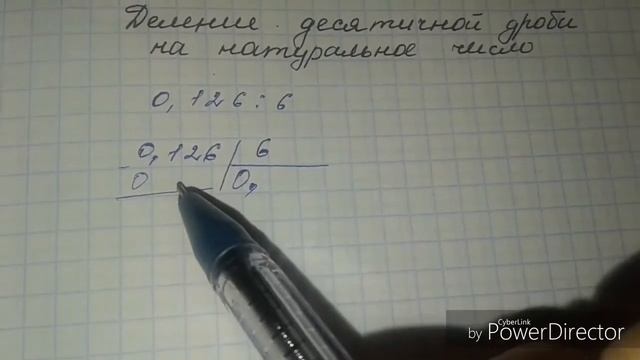 Деление десятичной дроби
на натуральное число
0,126:6
0,126 | 6
0 | 0,
CyberLink
by PowerDirector